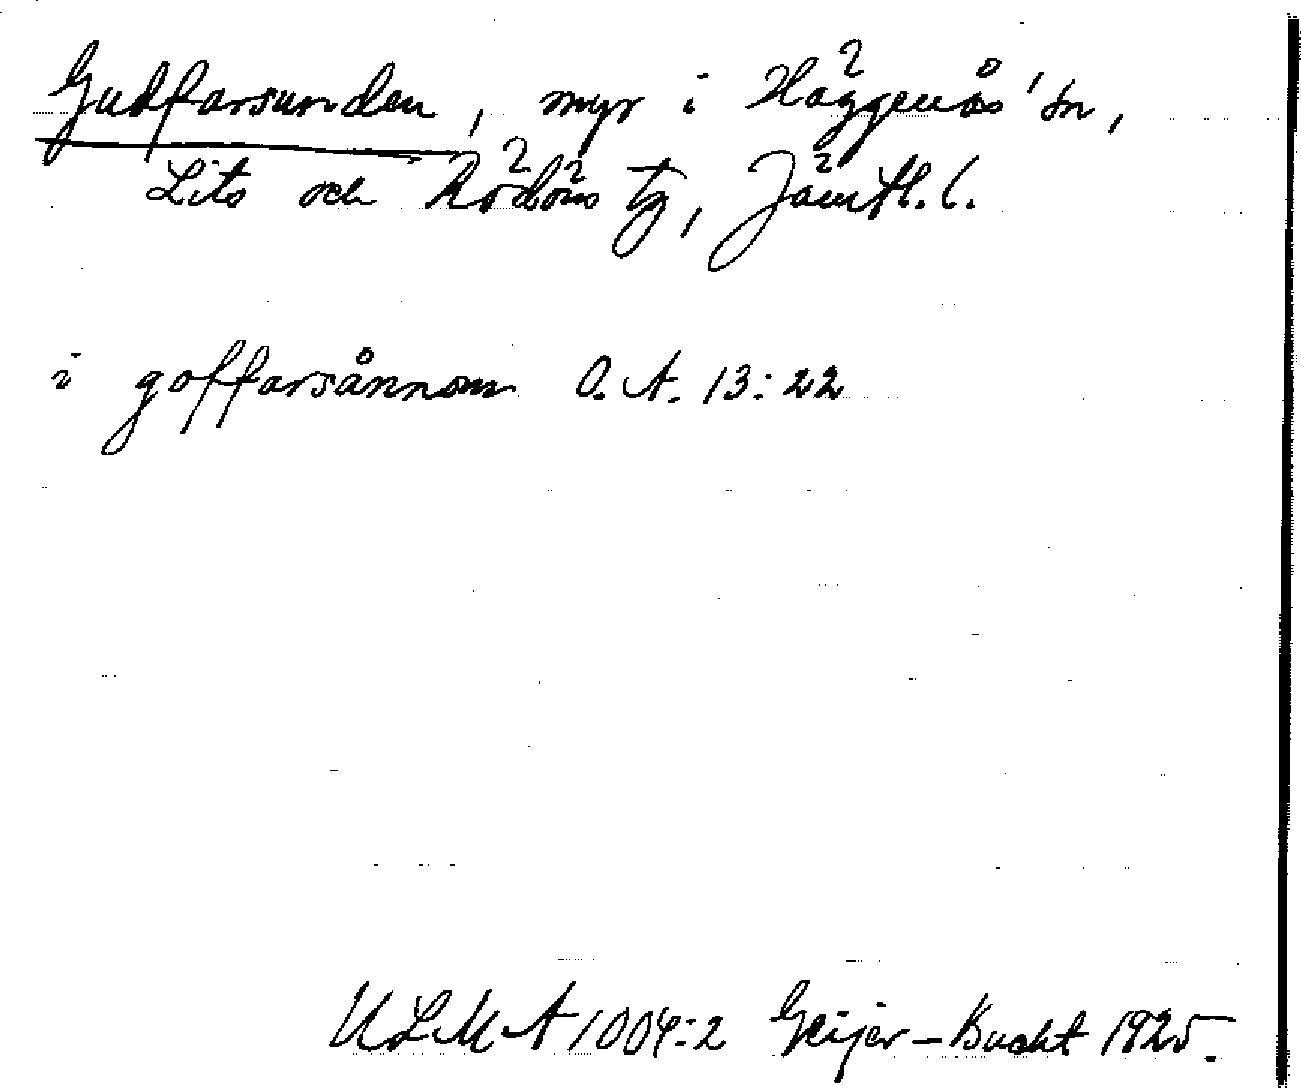 Gudfarsunden, myr i Häggenås' sn,
Lits och Rödöns tg, Jämtl. l.
i goffarsånnom O. A. 13:22
ULMA 1004:2 Geijer–Bucht 1925.